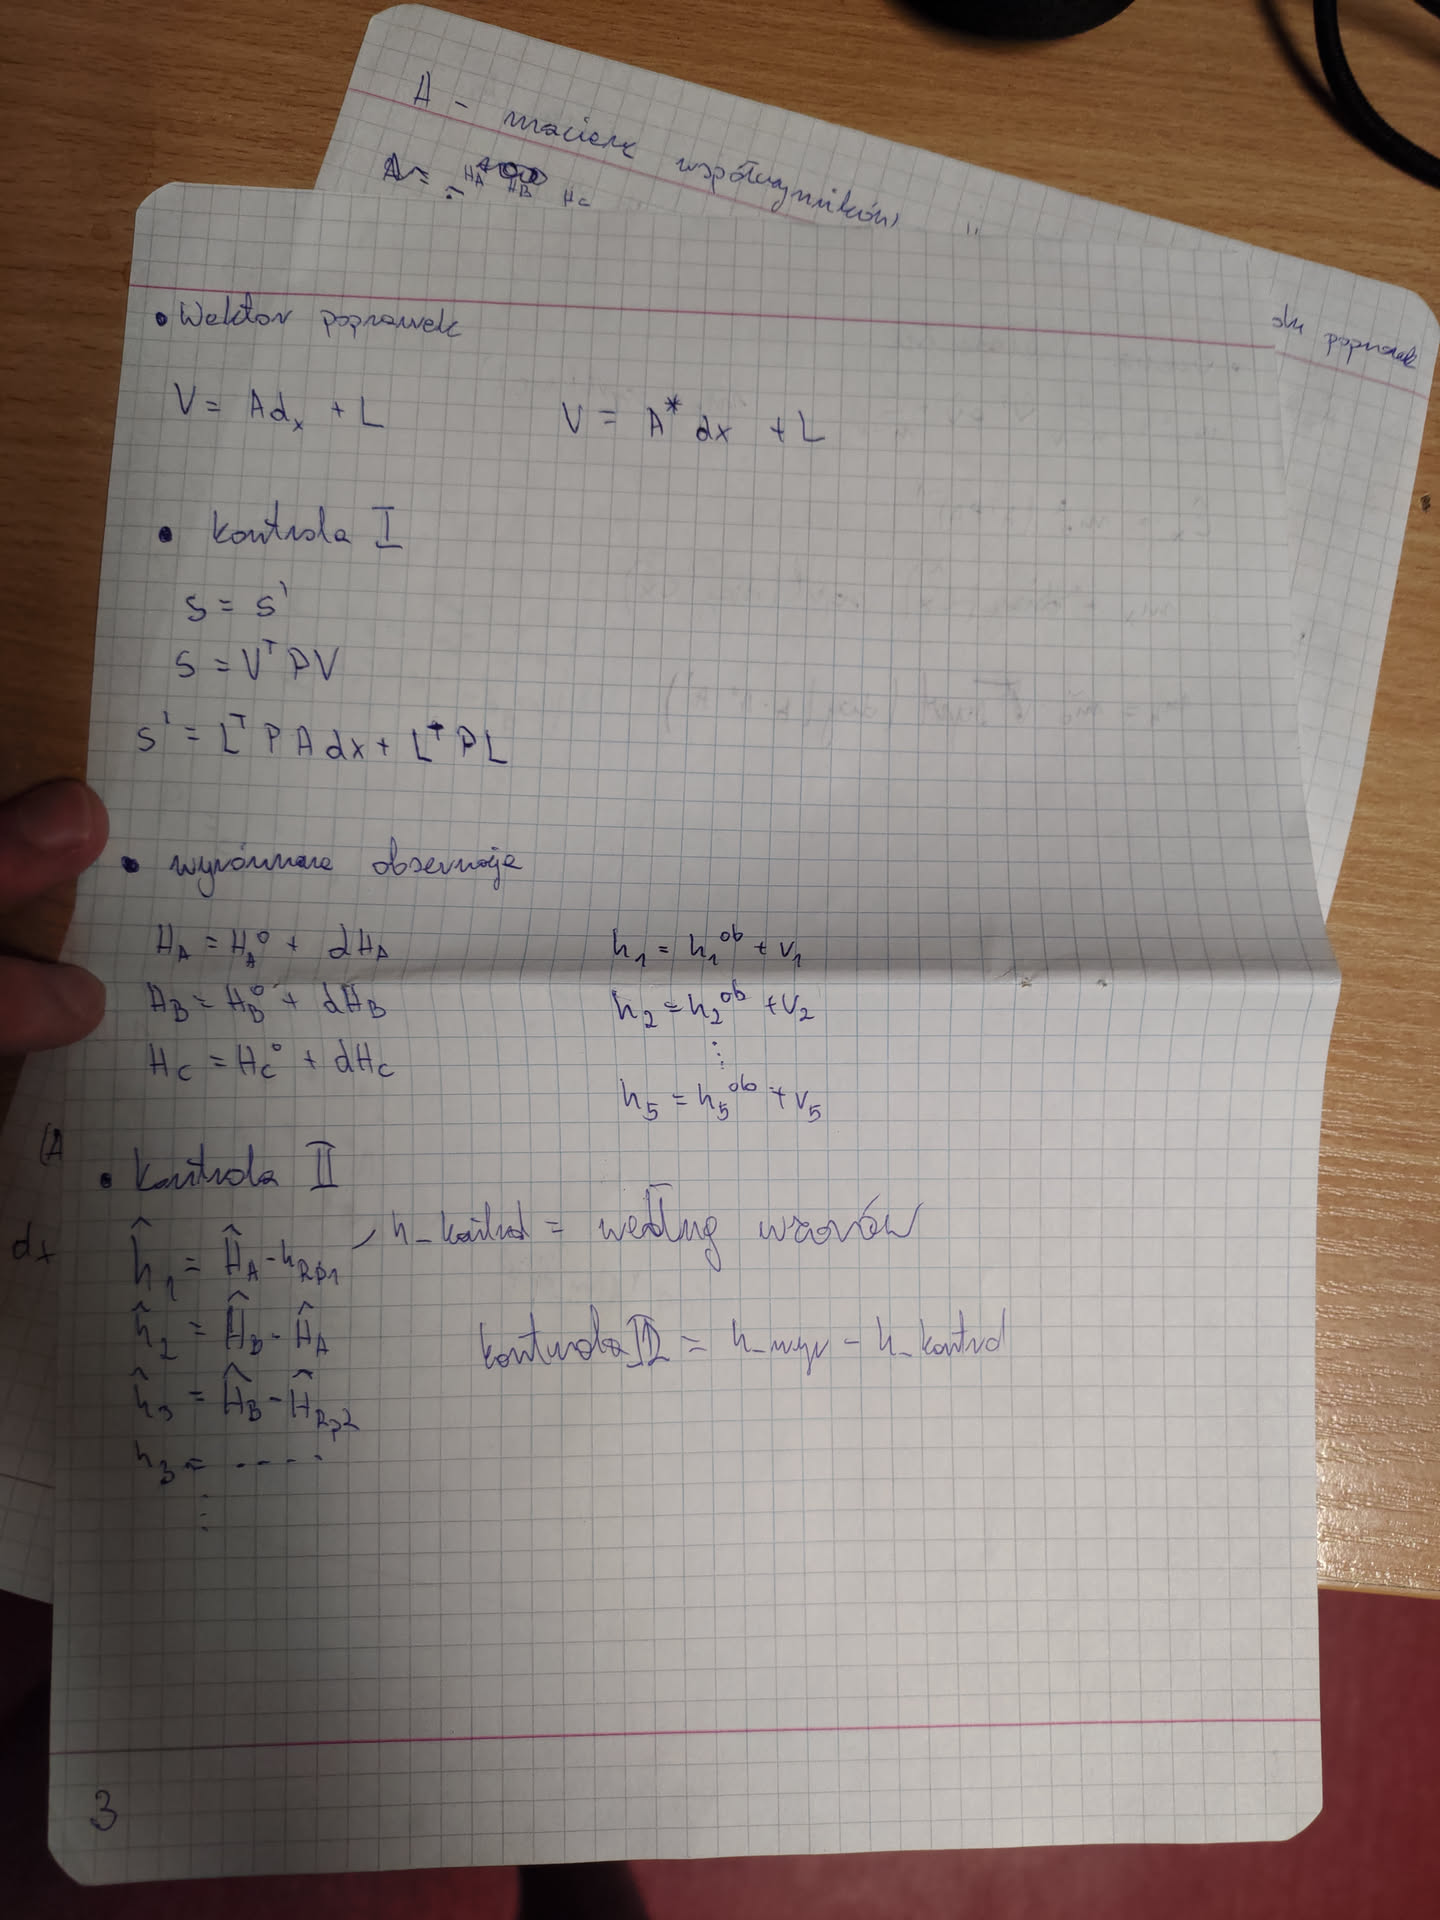 A - macierz współczynników
A =
HA HB HC
ów poprawek
• Wektor poprawek
V = Adx + L V = A* dx + L
• kontrola I
s = s'
s = Vᵀ P V
s' = Lᵀ P A dx + Lᵀ P L
• wyrównane obserwacje
HA = HA° + dHA h1 = h1ᵒᵇ + v1
HB = HB° + dHB h2 = h2ᵒᵇ + v2
⋮
HC = HC° + dHC
h5 = h5ᵒᵇ + v5
(A
• kontrola II
dx
ĥ1 = ĤA - hRp1 , h_kontrol = według wzorów
ĥ2 = ĤB - ĤA
kontrola II = h_wyr - h_kontrol
ĥ3 = ĤB - ĤRp2
h3 = .....
⋮
3